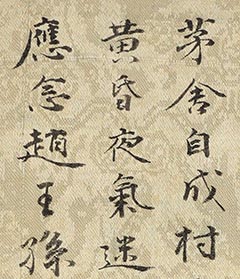 茅舍自成村
黄昏夜氣迷
應念趙王孫